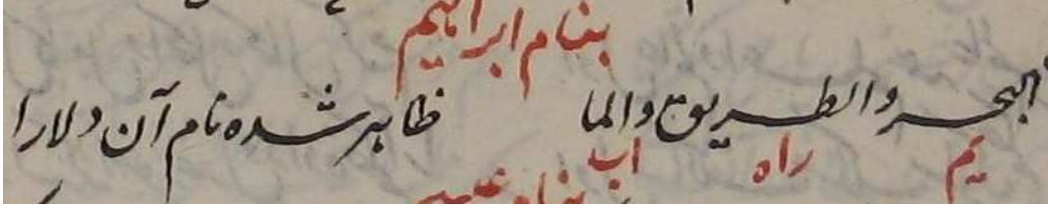 بنام ابراهیم
البحر والطریق والما ظاهر شده نام آن دلارا
یم راه اب
بنام